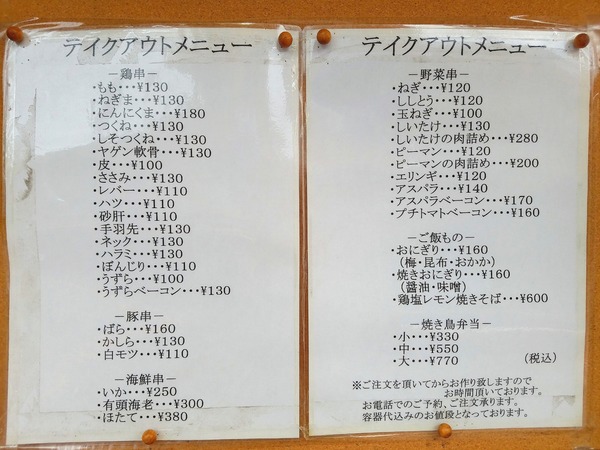 テイクアウトメニュー
－鶏串－
・もも・・・¥130
・ねぎま・・・¥130
・にんにくま・・・¥180
・つくね・・・¥130
・しそつくね・・・¥130
・ヤゲン軟骨・・・¥130
・皮・・・¥100
・ささみ・・・¥130
・レバー・・・¥110
・ハツ・・・¥110
・砂肝・・・¥110
・手羽先・・・¥130
・ネック・・・¥130
・ハラミ・・・¥130
・ぼんじり・・・¥110
・うずら・・・¥100
・うずらベーコン・・・¥130
－豚串－
・ばら・・・¥160
・かしら・・・¥130
・白モツ・・・¥110
－海鮮串－
・いか・・・¥250
・有頭海老・・・¥300
・ほたて・・・¥380
テイクアウトメニュー
－野菜串－
・ねぎ・・・¥120
・ししとう・・・¥120
・玉ねぎ・・・¥100
・しいたけ・・・¥130
・しいたけの肉詰め・・・¥280
・ピーマン・・・¥120
・ピーマンの肉詰め・・・¥200
・エリンギ・・・¥120
・アスパラ・・・¥140
・アスパラベーコン・・・¥170
・プチトマトベーコン・・・¥160
－ご飯もの－
・おにぎり・・・¥160
（梅・昆布・おかか）
・焼きおにぎり・・・¥160
（醤油・味噌）
・鶏塩レモン焼きそば・・・¥600
－焼き鳥弁当－
・小・・・¥330
・中・・・¥550
・大・・・¥770 （税込）
※ご注文を頂いてからお作り致しますので
お時間頂いております。
お電話でのご予約、ご注文承ります。
容器代込みのお値段となっております。